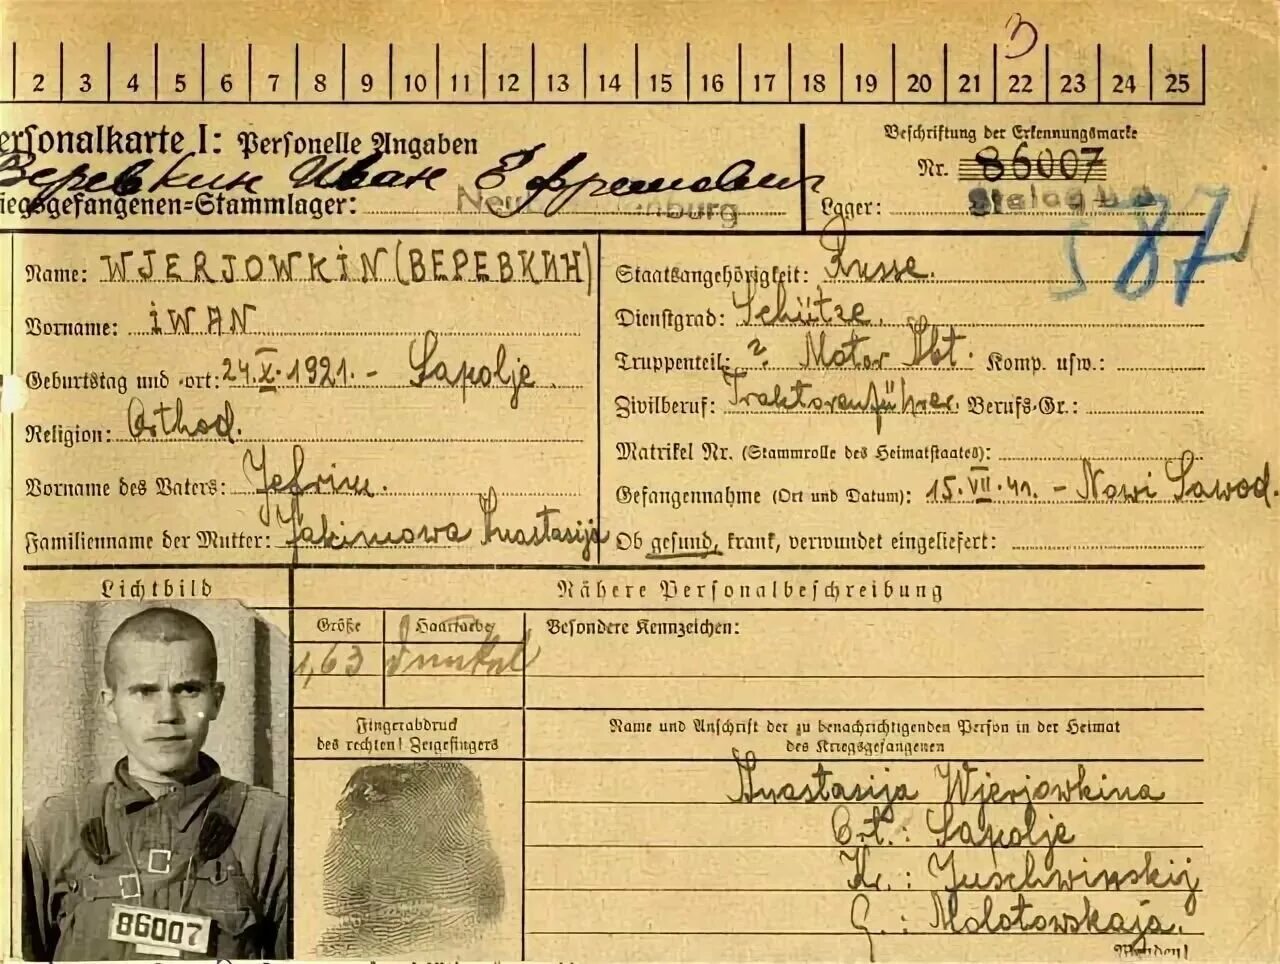 3
2 3 4 5 6 7 8 9 10 11 12 13 14 15 16 17 18 19 20 21 22 23 24 25
ersonalkarte I: Personelle Angaben
Beschriftung der Erkennungsmarke
Веревкин Иван Ефремович
Nr. 86007
iegsgefangenen=Stammlager: Neu burg
Lager: Stalag
587
Name: WJERJOWKIN (ВЕРЕВКИН)
Vorname: IWAN
Geburtstag und -ort: 24.X.1921. - Sapolje
Religion: Orthod.
Vorname des Vaters: Jefrim.
Familienname der Mutter: Jakimowa Anastasija
Staatsangehörigkeit: Russe.
Dienstgrad: Schütze.
Truppenteil: ? Motor Abt. Komp. usw.:
Zivilberuf: Traktorenführer. Berufs-Gr.:
Matrikel Nr. (Stammrolle des Heimatstaates):
Gefangennahme (Ort und Datum): 15.VII.41. - Nowi Sawod.
Ob gesund, krank, verwundet eingeliefert:
Lichtbild
86007
Nähere Personalbeschreibung
Größe
1,63
Haarfarbe
Dunkel
Besondere Kennzeichen:
Fingerabdruck
des rechten! Zeigefingers
Name und Anschrift der zu benachrichtigenden Person in der Heimat
des Kriegsgefangenen
Anastasija Wjerjowkina
Ort.: Sapolje
Kr.: Juschwinskij
G.: Molotowskaja.
Wenden!